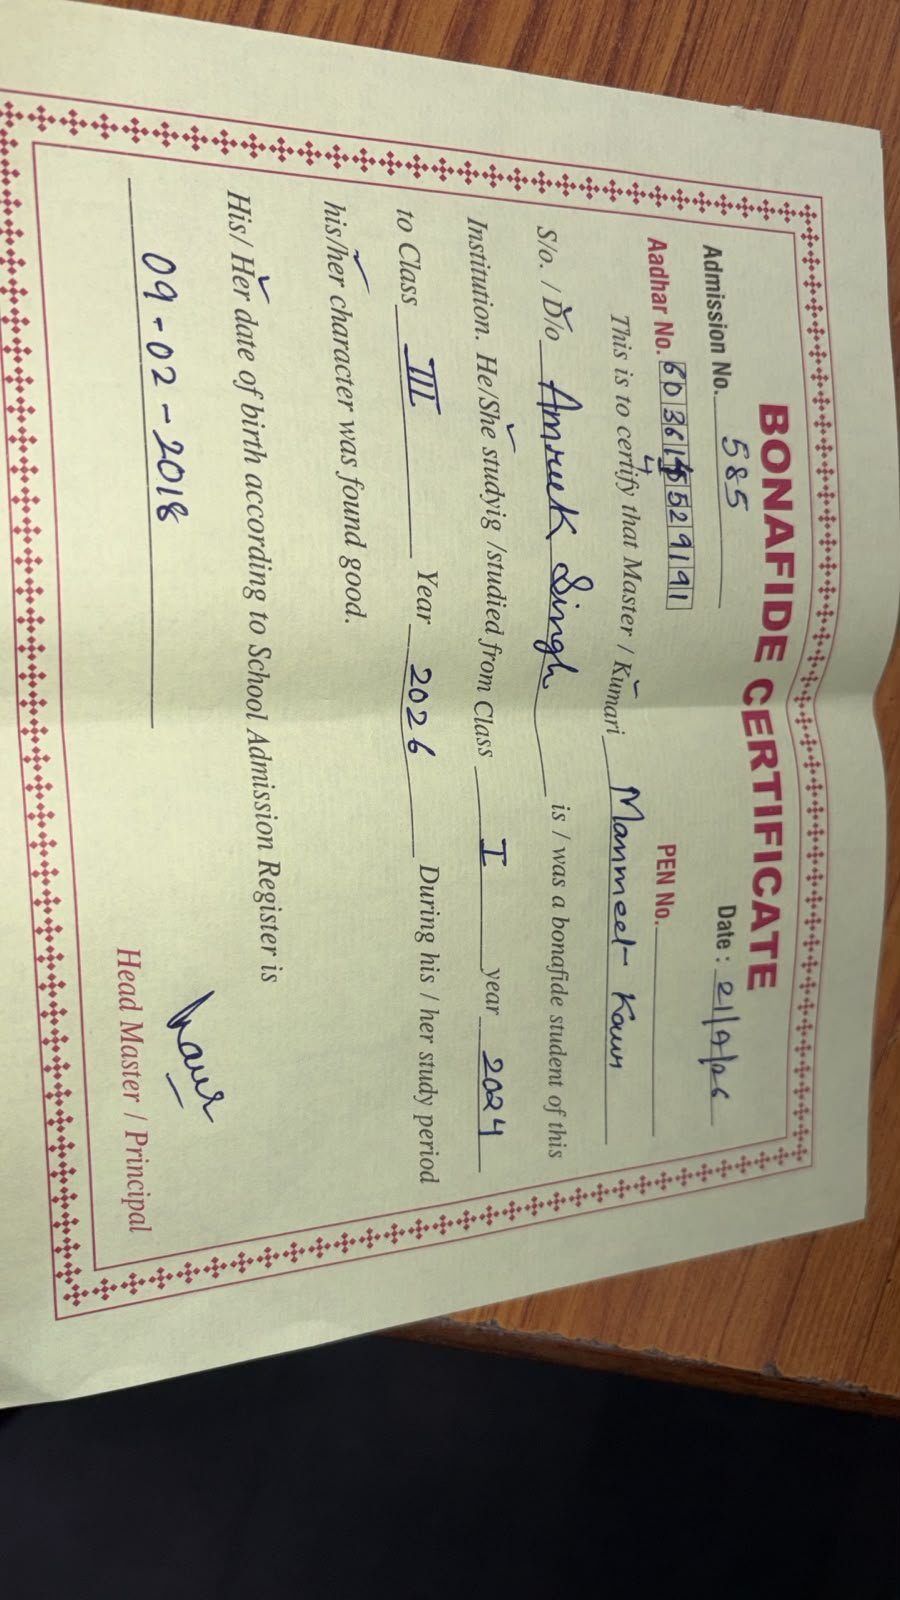 BONAFIDE CERTIFICATE
Admission No. 585 Date : 21/9/26
Aadhar No. PEN No.
This is to certify that Master / Kumari Manmeet Kaur
S/o. / D/o Amreek Singh is / was a bonafide student of this
Institution. He/She studyig /studied from Class I year 2024
to Class III Year 2026 During his / her study period
his/her character was found good.
His/ Her date of birth according to School Admission Register is
09-02-2018
Kaur
Head Master / Principal